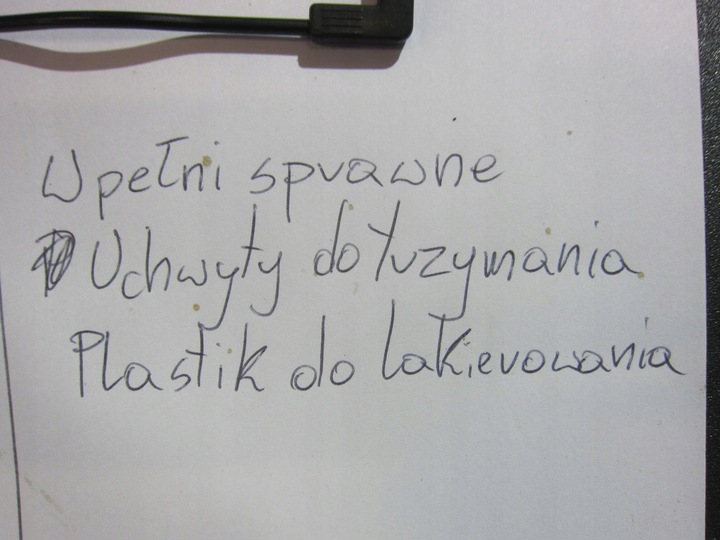 Wpełni sprawne
Uchwyty do trzymania
Plastik do lakierowania